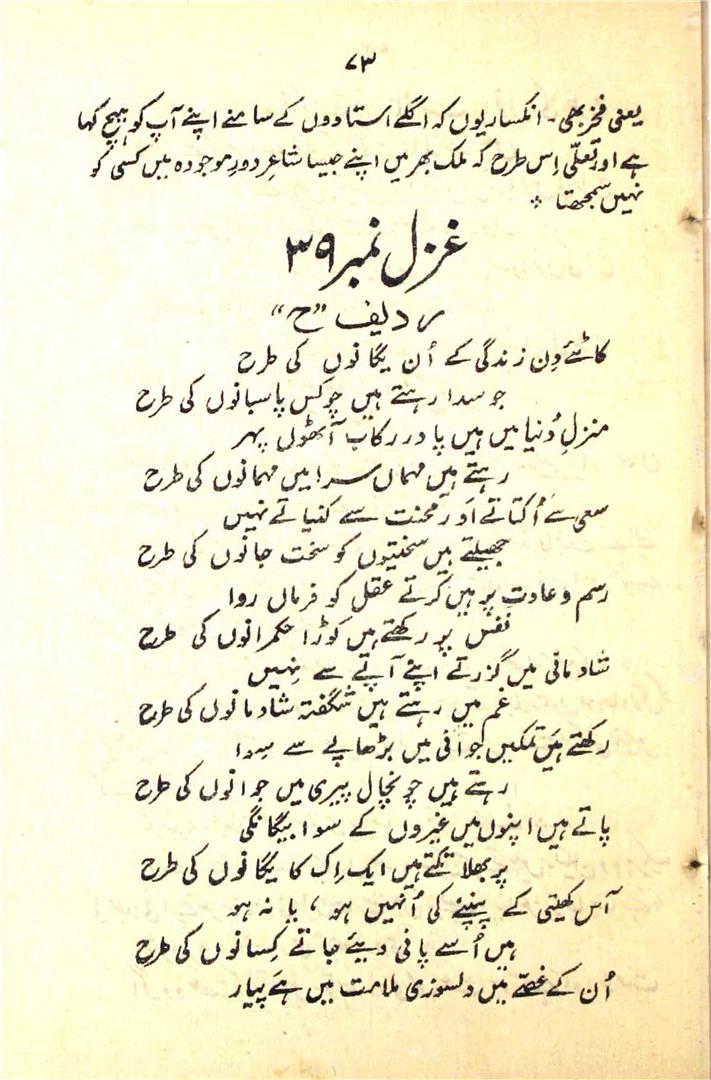 ۷۳
یعنی فخر بھی ۔ انکسار یوں کہ اگلے استادوں کے سامنے اپنے آپ کو ہیچ کہا
ہے اور تعلّی اِس طرح کہ ملک بھر میں اپنے جیسا شاعر دورِ موجودہ میں کسی کو
نہیں سمجھتا ؞
غزل نمبر ۳۹
ردیف "ح"
کاٹئے دِن زندگی کے اُن یگانوں کی طرح
جو سدا رہتے ہیں چوکس پاسبانوں کی طرح
منزلِ دُنیا میں ہیں پا در رکاب آٹھوں پہر
رہتے ہیں مہماں سرا میں مہمانوں کی طرح
سعی سے اُکتاتے اور محنت سے کنیاتے نہیں
جھیلتے ہیں سختیوں کو سخت جانوں کی طرح
رسم و عادت پر ہیں کرتے عقل کو فرماں روا
نفس پر رکھتے ہیں کوڑا حکمرانوں کی طرح
شادمانی میں گزرتے اپنے آپے سے نہیں
غم میں رہتے ہیں شگفتہ شادمانوں کی طرح
رکھتے ہیں تمکیں جوانی میں بڑھاپے سے سوا
رہتے ہیں چونچال پیری میں جوانوں کی طرح
پاتے ہیں اپنوں میں غیروں کے سوا بیگانگی
پر بھلا تکتے ہیں ایک اِک کا یگانوں کی طرح
آس کھیتی کے پنپنے کی اُنہیں ہو ، یا نہ ہو
ہیں اُسے پانی دیئے جاتے کِسانوں کی طرح
اُن کے غصّے میں دلسوزی ملامت میں ہے پیار